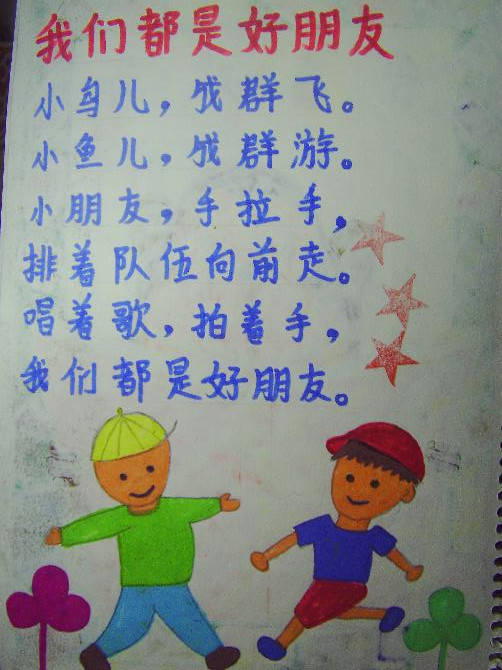 我们都是好朋友
小鸟儿，成群飞。
小鱼儿，成群游。
小朋友，手拉手，
排着队伍向前走。
唱着歌，拍着手，
我们都是好朋友。